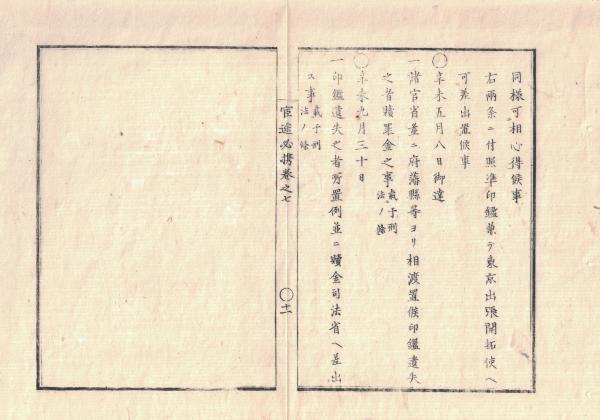 同様可相心得候事
右兩条ニ付照準印鑑兼テ東京出張開拓使ヘ
可差出置候事
〇辛未五月八日御達
一諸官省並ニ府藩縣等ヨリ相渡置候印鑑遺失
之者贖罪金之事載于刑法ノ條
〇辛未九月三十日
一印鑑遺失之者処置例並ニ贖金司法省ヘ差出
ス事載于刑法ノ條
官途必携巻之七
〇十一